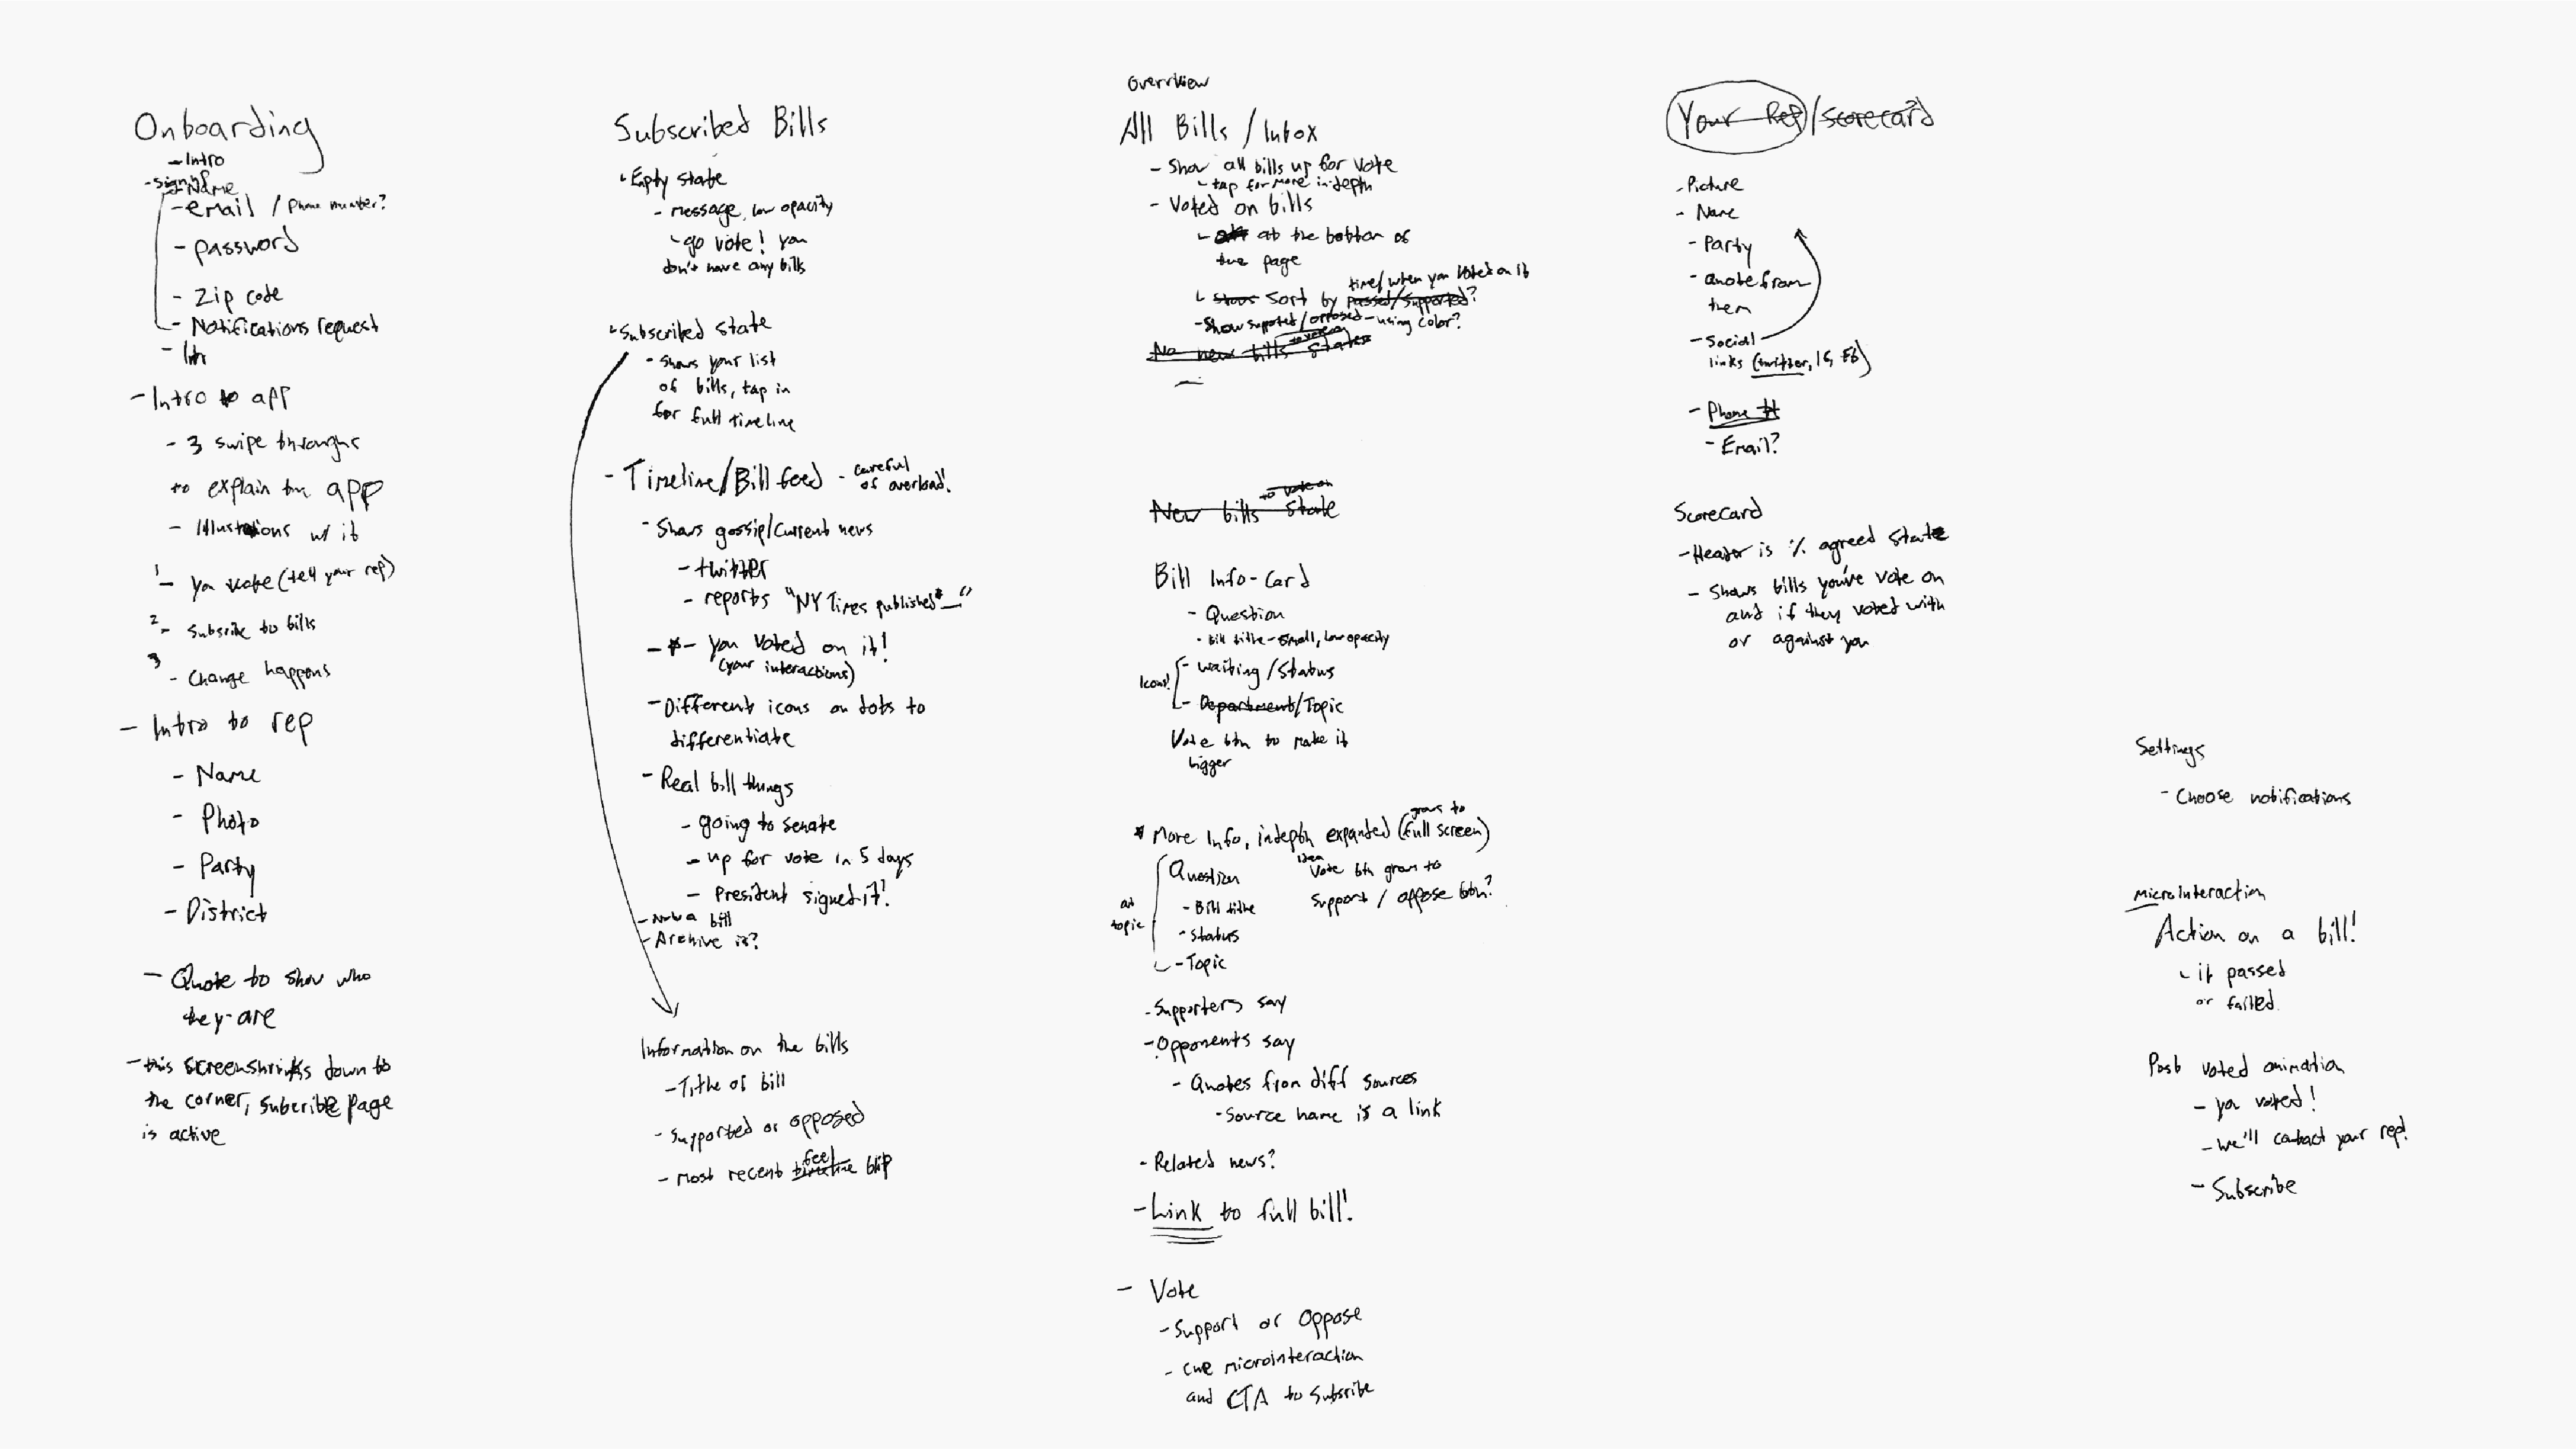 Onboarding
- Intro
- Sign up
- Name
- email / Phone number?
- password
- Zip code
- Notifications request
- Intro to app
- 3 swipe throughs
to explain the app
- Illustrations w/ it
1 - you vote (tell your rep)
2 - Subsribe to bills
3 - Change happens
- Intro to rep
- Name
- Photo
- Party
- District
- Quote to show who
they are
- this screen shrinks down to
the corner, Subcribe page
is active
Subscribed Bills
Empty state
- message, low opacity
go vote! you
don't have any bills
Subscribed state
- Shows your list
of bills, tap in
for full timeline
- Timeline/Bill feed - careful
of overload!
- Shows gossip/current news
- twitter
- reports "NY Times published* _"
- * - you voted on it!
(your interactions)
- Different icons on dots to
differentiate
- Real bill things
- going to senate
- up for vote in 5 days
- President signed it!
bill
- Archive it?
Information on the bills
- Title of bill
- Supported or opposed
- most recent timeline feed blip
Overview
All Bills / Inbox
- Show all bills up for vote
tap for more indepth
- Voted on bills
at the bottom of
the page
time/when you voted on it
Shows Sort by passed/supported?
- Show supported/opposed - using color?
No new bills to vote on State
to vote on
New bills State
Bill Info-Card
- Question
- bill title - small, low opacity
- waiting/Status
Icons!
- Department/Topic
Vote btn to make it
bigger
* More Info, indepth expanded (grows to full screen)
Question
- Bill title
- Status
- Topic
at
topic
idea
Vote btn grows to
Support / oppose btn?
- Supporters say
- Opponents say
- Quotes from diff sources
- Source name is a link
- Related news?
- Link to full bill!
- Vote
- Support or Oppose
- cue microinteraction
and CTA to subsribe
Your Rep/Scorecard
- Picture
- Name
- Party
- Quote from
them
- Social
links (twitter, IG, FB)
- Phone #
- Email?
Scorecard
- Header is % agreed state
- Shows bills you've vote on
and if they voted with
or against you
Settings
- Choose notifications
MicroInteraction
Action on a bill!
it passed
or failed
Post voted animation
- you voted!
- we'll contact your rep!
- Subscribe